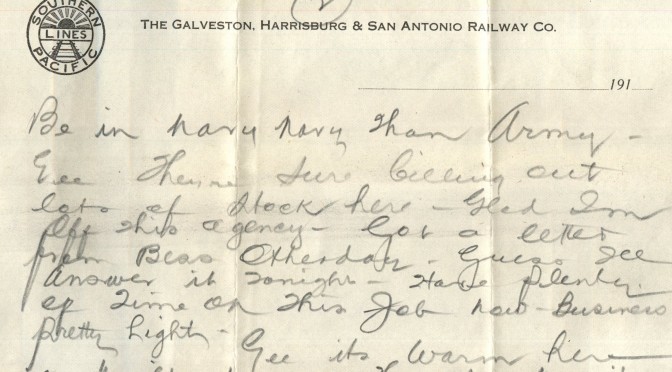 2
SOUTHERN PACIFIC
LINES
THE GALVESTON, HARRISBURG & SAN ANTONIO RAILWAY CO.
191
Be in navy navy than Army -
Gee They're sure billing out
lots of stock here - Glad Im
Off this agency - Got a letter
from Bess Otherday - Guess Ill
answer it tonight - Have plenty
of time on this Job now - Business
pretty light -
Gee its warm here